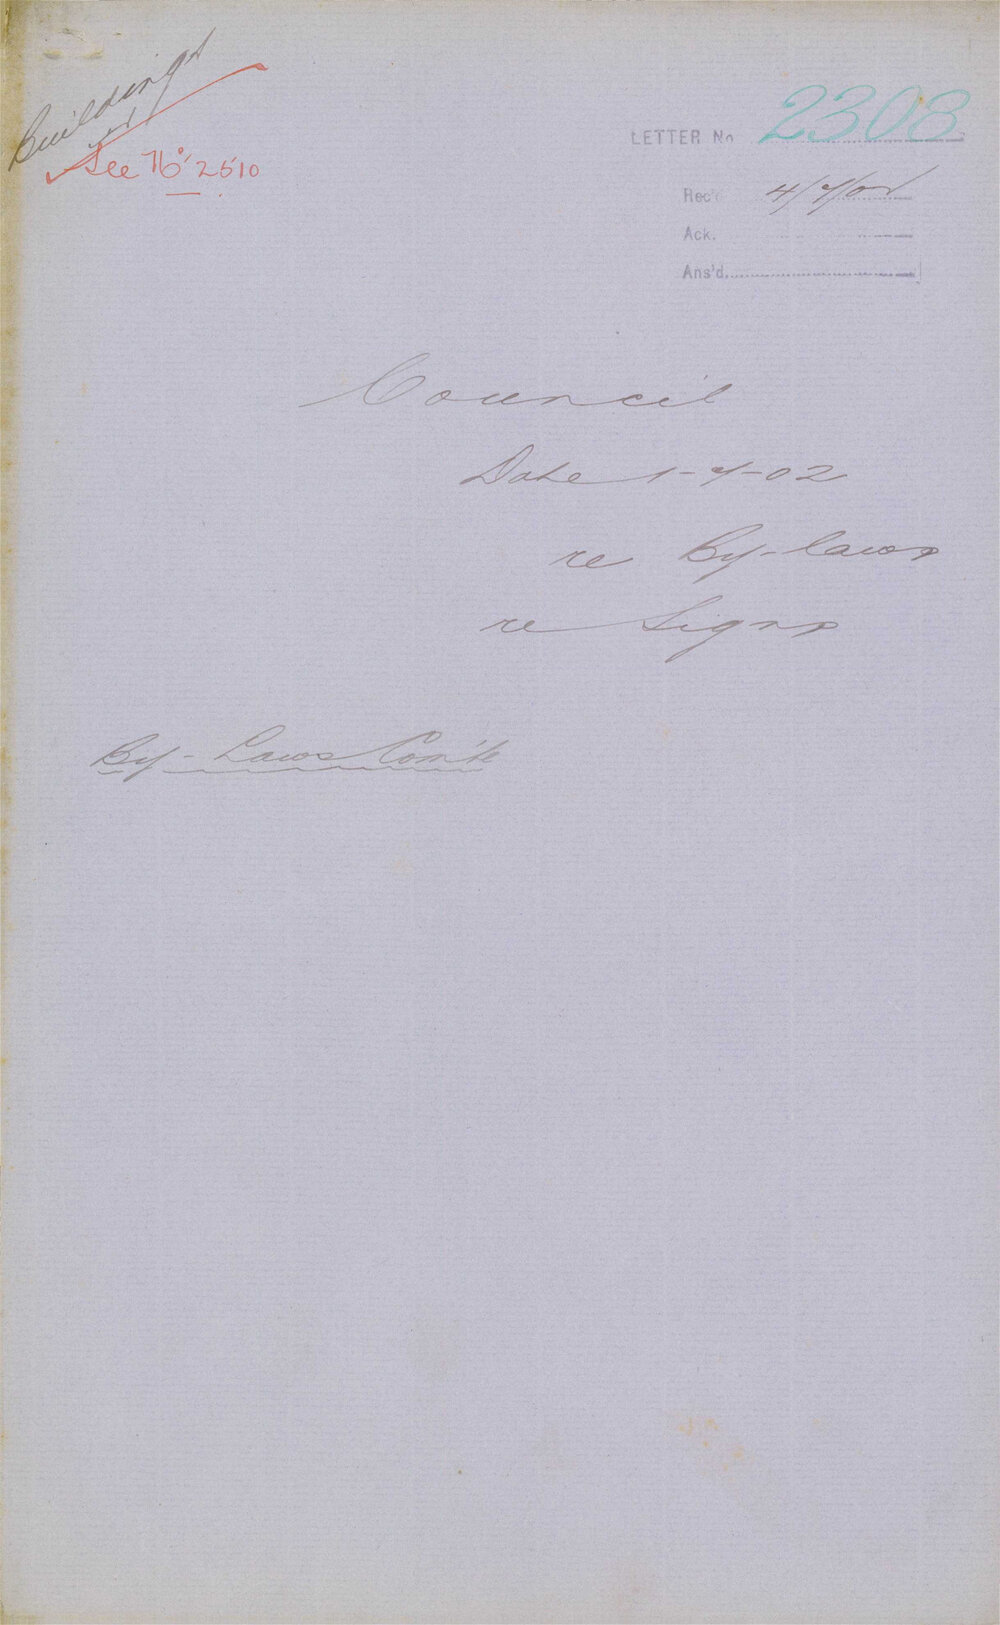 Buildings
See No 2510
LETTER No 2308
Rec'd 4/7/02
Ack.
Ans'd
Council
Date 1-7-02
re By-laws
re Signs
By-Laws Com'te